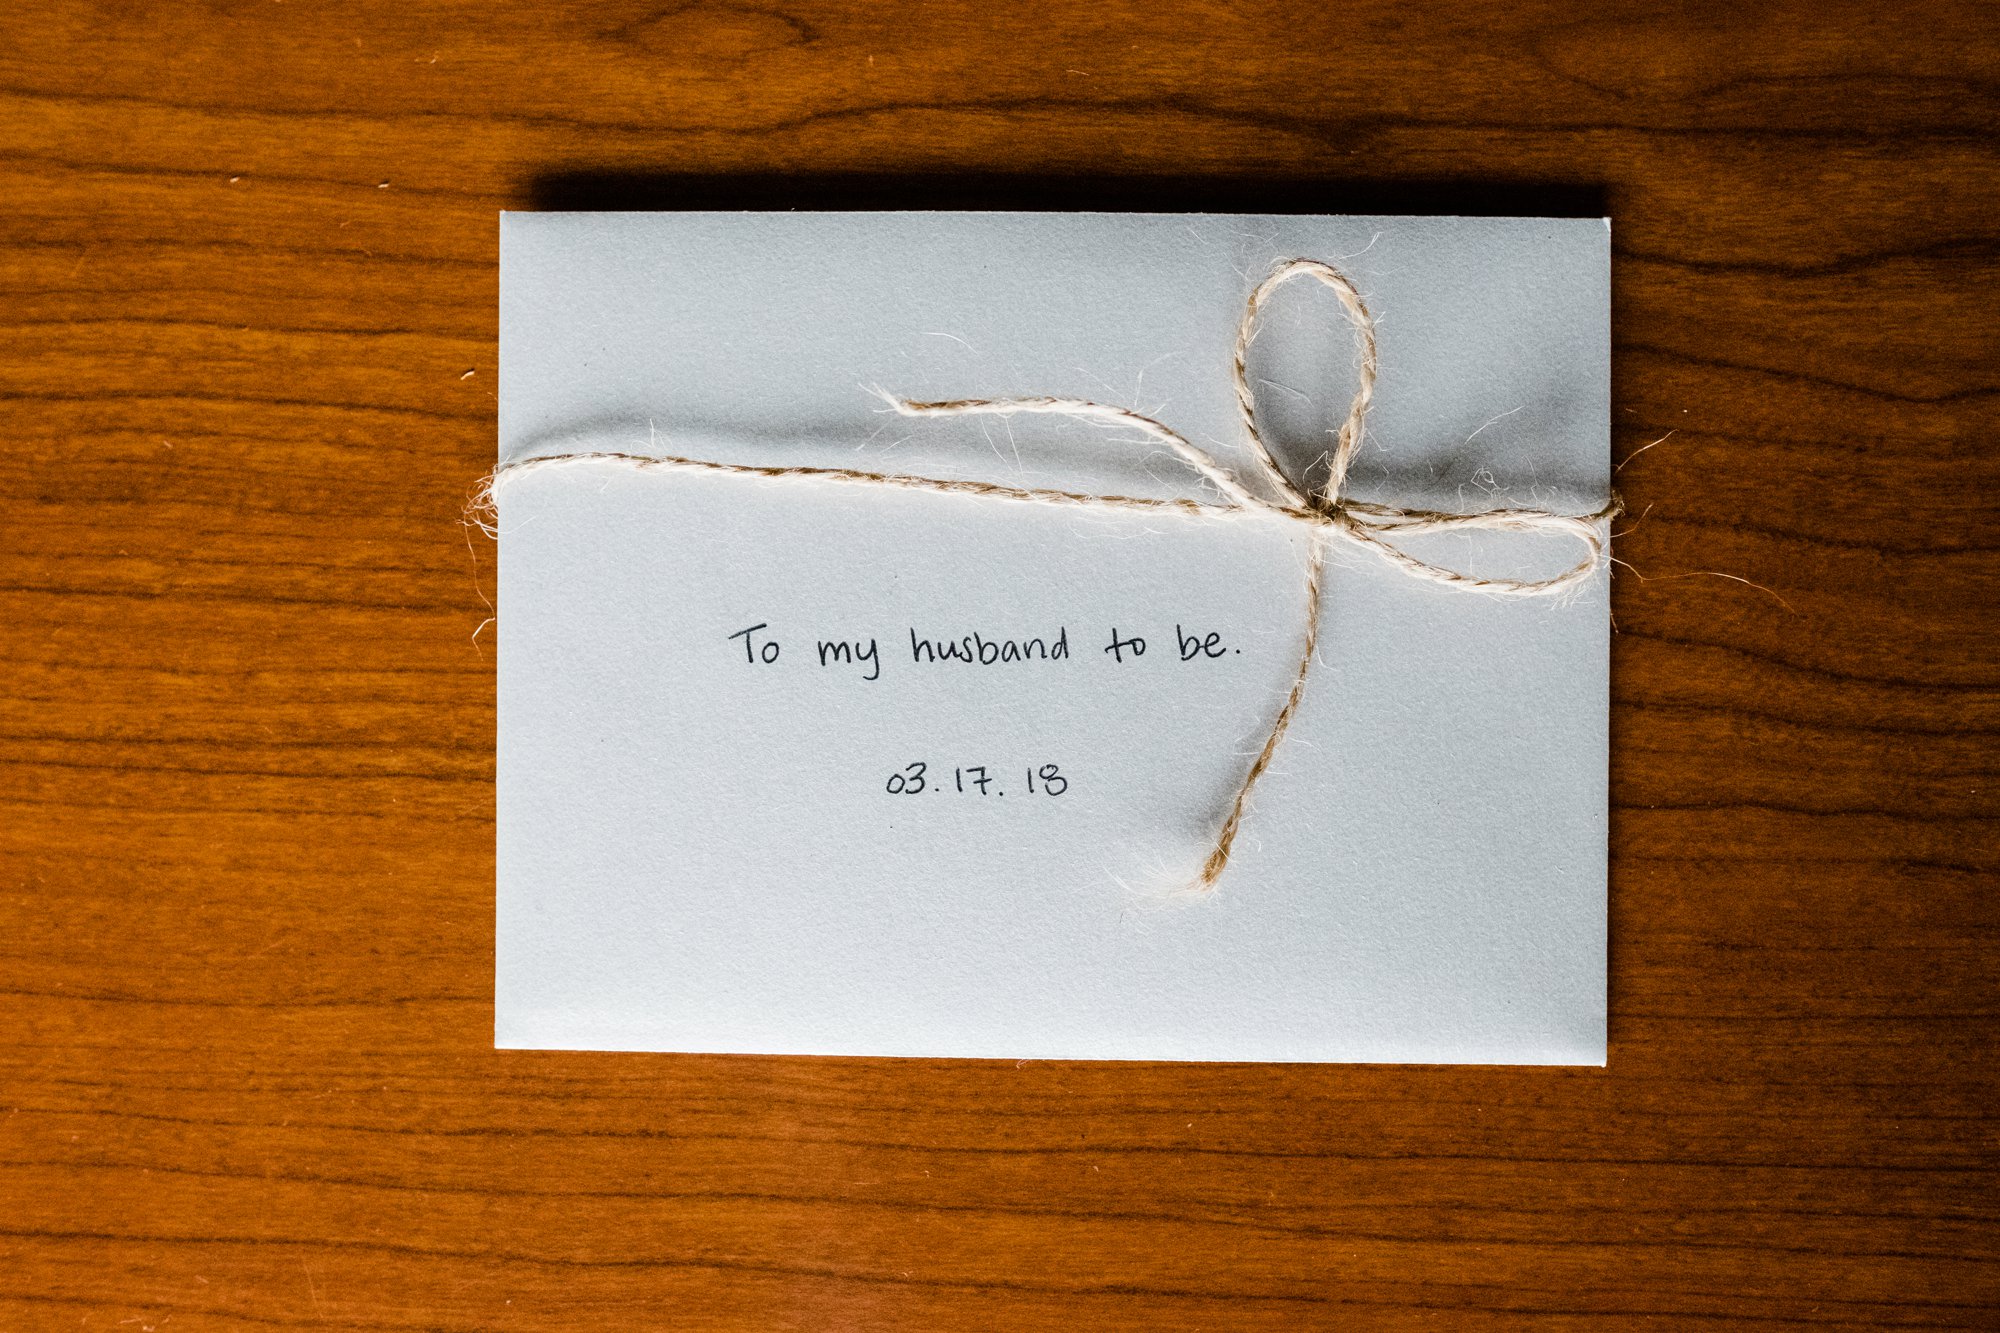 To my husband to be.
03.17.18